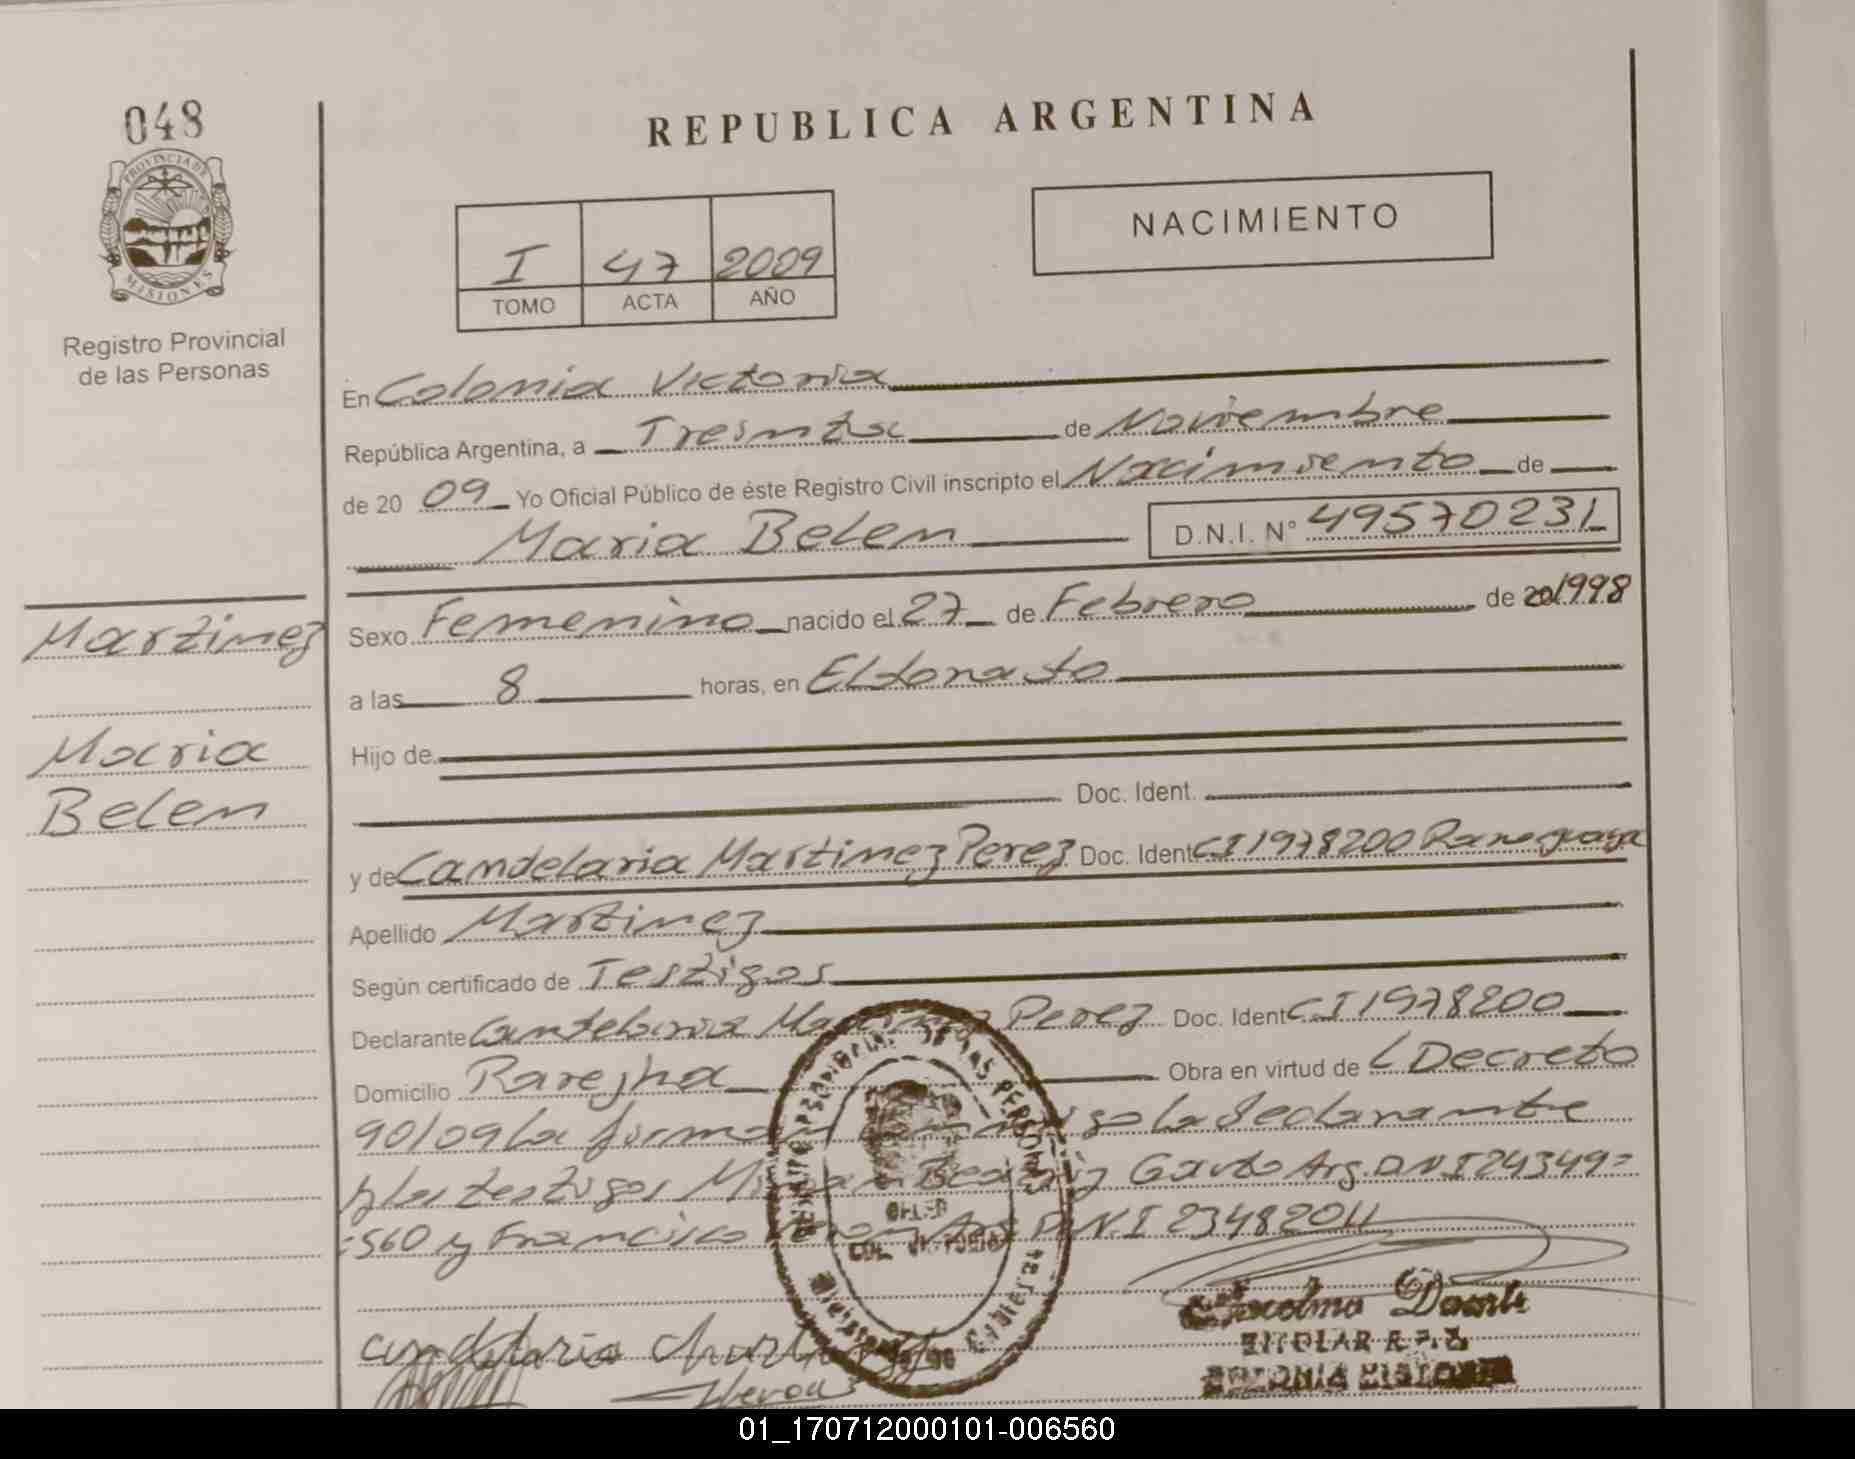 048
PROVINCIA DE
MISIONES
Registro Provincial
de las Personas
REPUBLICA ARGENTINA
NACIMIENTO
I 47 2009
TOMO ACTA AÑO
En Colonia Victoria
República Argentina, a Treinta de Noviembre
de 20 09 Yo Oficial Público de éste Registro Civil inscripto el Nacimiento de
Maria Belen D.N.I. N° 49570231
Martinez
Maria
Belen
Sexo Femenino nacido el 27 de Febrero de 20 1998
a las 8 horas, en Eldorado
Hijo de
Doc. Ident.
y de Candelaria Martinez Perez Doc. Ident CI 1978200 Paraguaya
Apellido Martinez
Según certificado de Testigos
Declarante Candelaria Martinez Perez Doc. Ident CI 1978200
Domicilio Obra en virtud de L Decreto
90/09 La firman conmigo la declarante
y los testigos Beatriz Arg. D N I 24349=
=560 y Francisco Arg D.N.I 23482011
Candelaria Mart
TITULAR R.P.